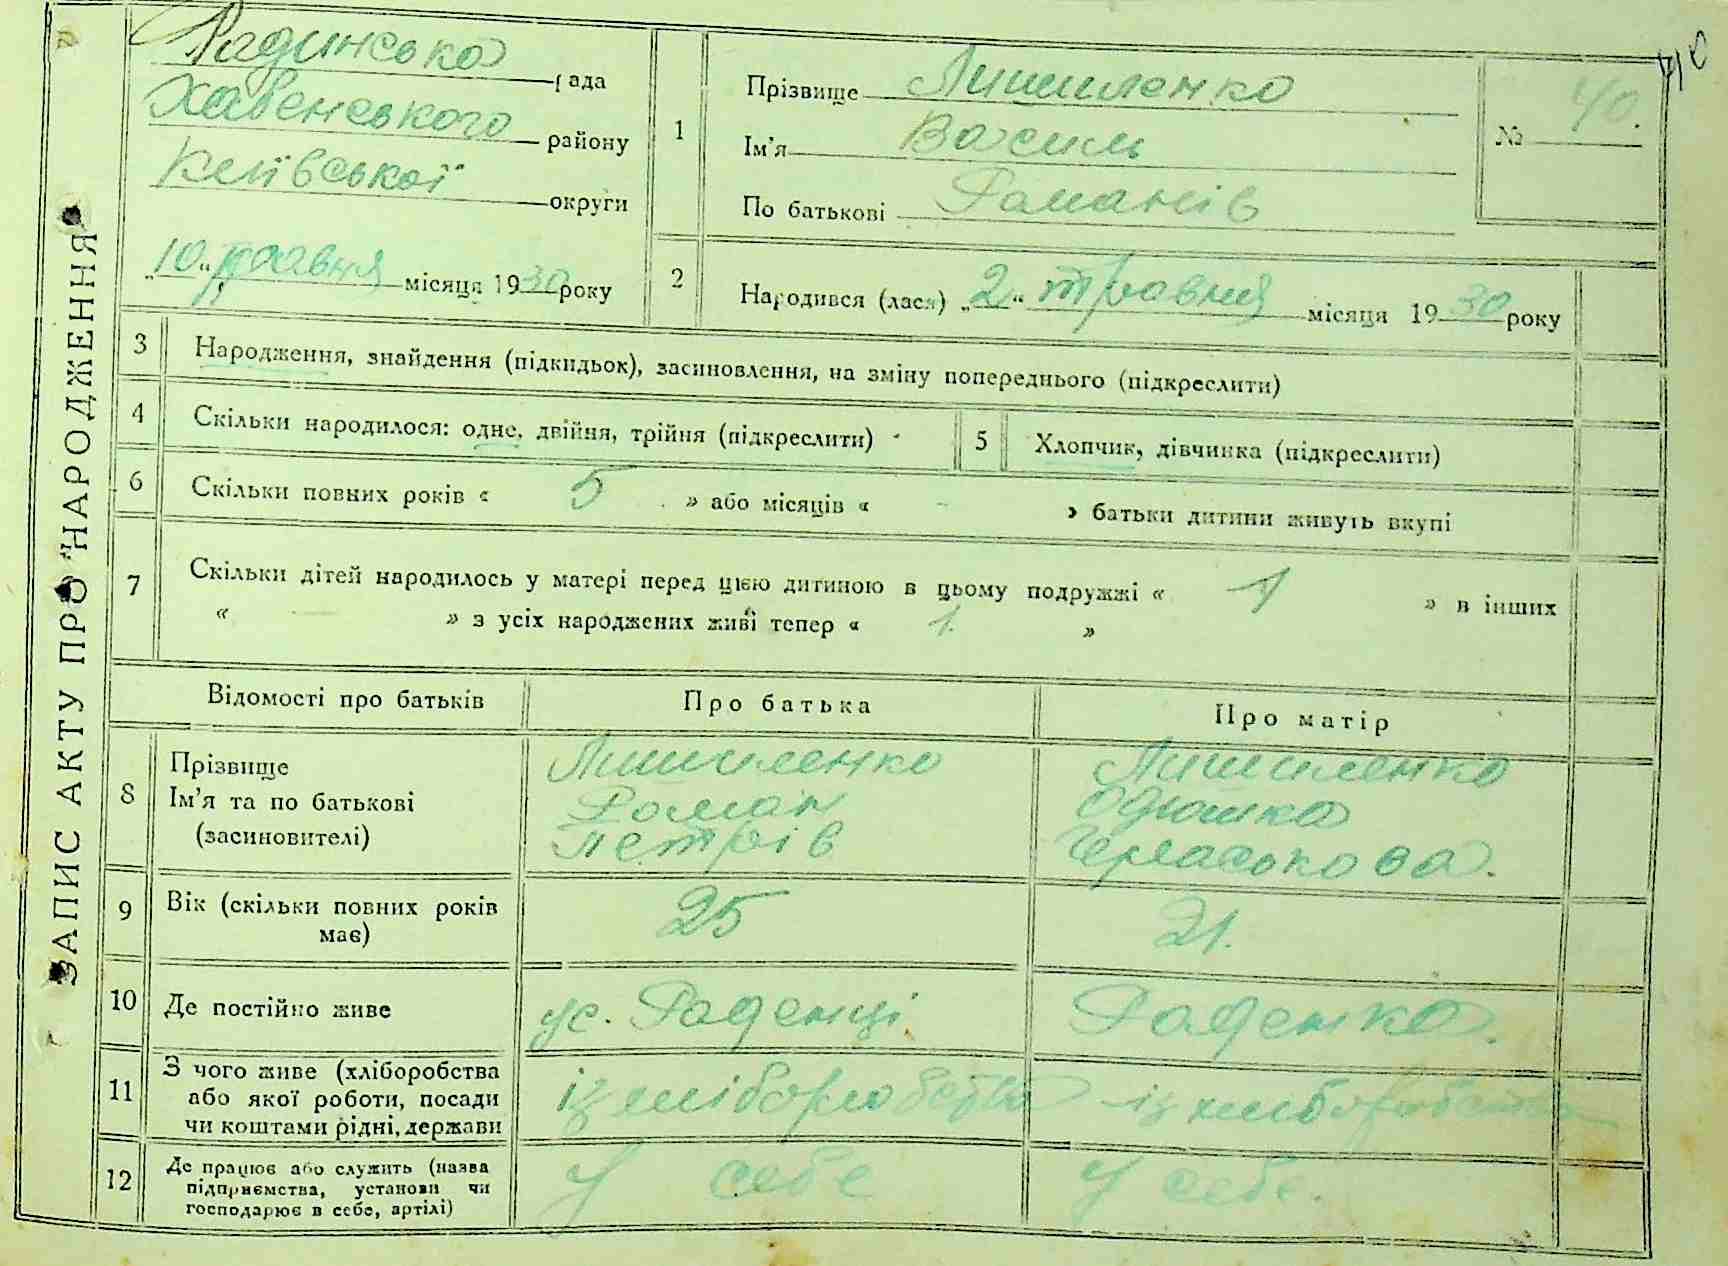 ЗАПИС АКТУ ПРО "НАРОДЖЕННЯ"
Радинська рада
Хабенського району
Київської округи
„10“ травня місяця 1930 року
40
1 Прізвище Лишиленко
Ім'я Василь
По батькові Романів
№ 40.
2 Народився (лася) „2“ травня місяця 1930 року
3 Народження, знайдення (підкидьок), засиновлення, на зміну попереднього (підкреслити)
4 Скільки народилося: одне, двійня, трійня (підкреслити)
5 Хлопчик, дівчинка (підкреслити)
6 Скільки повних років « 5 » або місяців « - » батьки дитини живуть вкупі
7 Скільки дітей народилось у матері перед цією дитиною в цьому подружжі « 1 » в інших
« — » з усіх народжених живі тепер « 1. »
Відомості про батьків Про батька Про матір
8 Прізвище Лишиленко Лишиленко
Ім'я та по батькові Роман
(засиновителі) Петрів
9 Вік (скільки повних років має) 25 21.
10 Де постійно живе
11 З чого живе (хліборобства або якої роботи, посади чи коштами рідні, держави із хліборобства із хліборобства
12 Де працює або служить (назва підприємства, установи чи господарює в себе, артілі) У себе У себе.